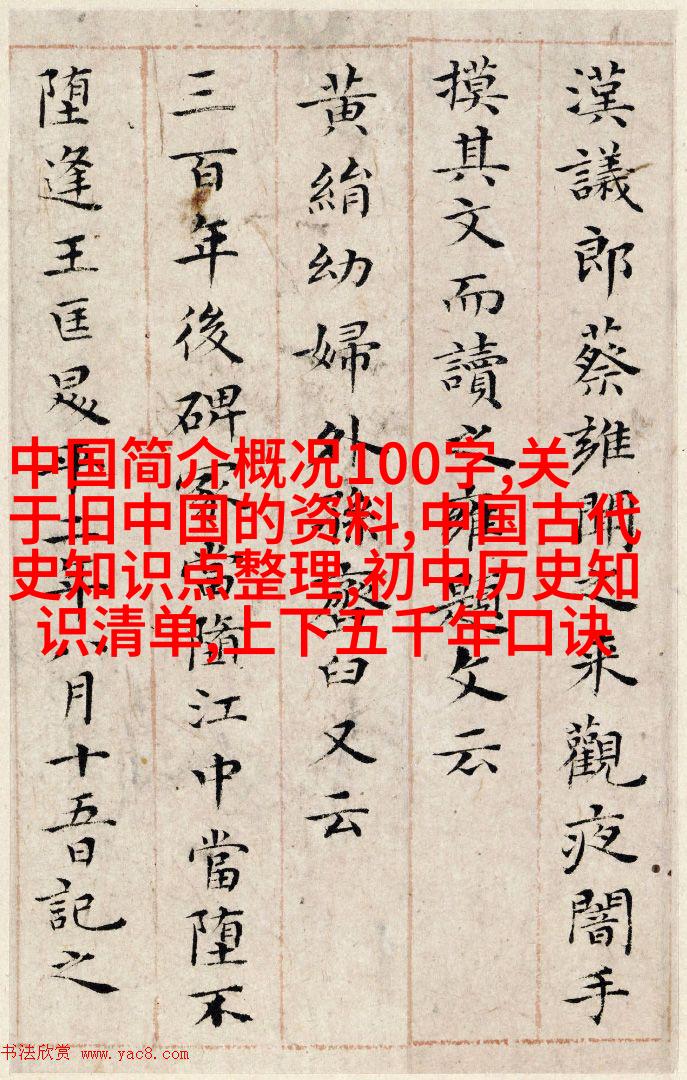 漢議郎蔡雍聞之来觀夜闇手
摸其文而讀之雍題文云
黄絹幼婦外孫齏臼又云
三百年後碑冢當墮江中當堕不
堕逢王匡平二年八月十五日記之
中国简介概况100字,关
于旧中国的资料,中国古代
史知识点整理,初中历史知
识清单,上下五千年口诀
书法欣赏 www.yac8.com